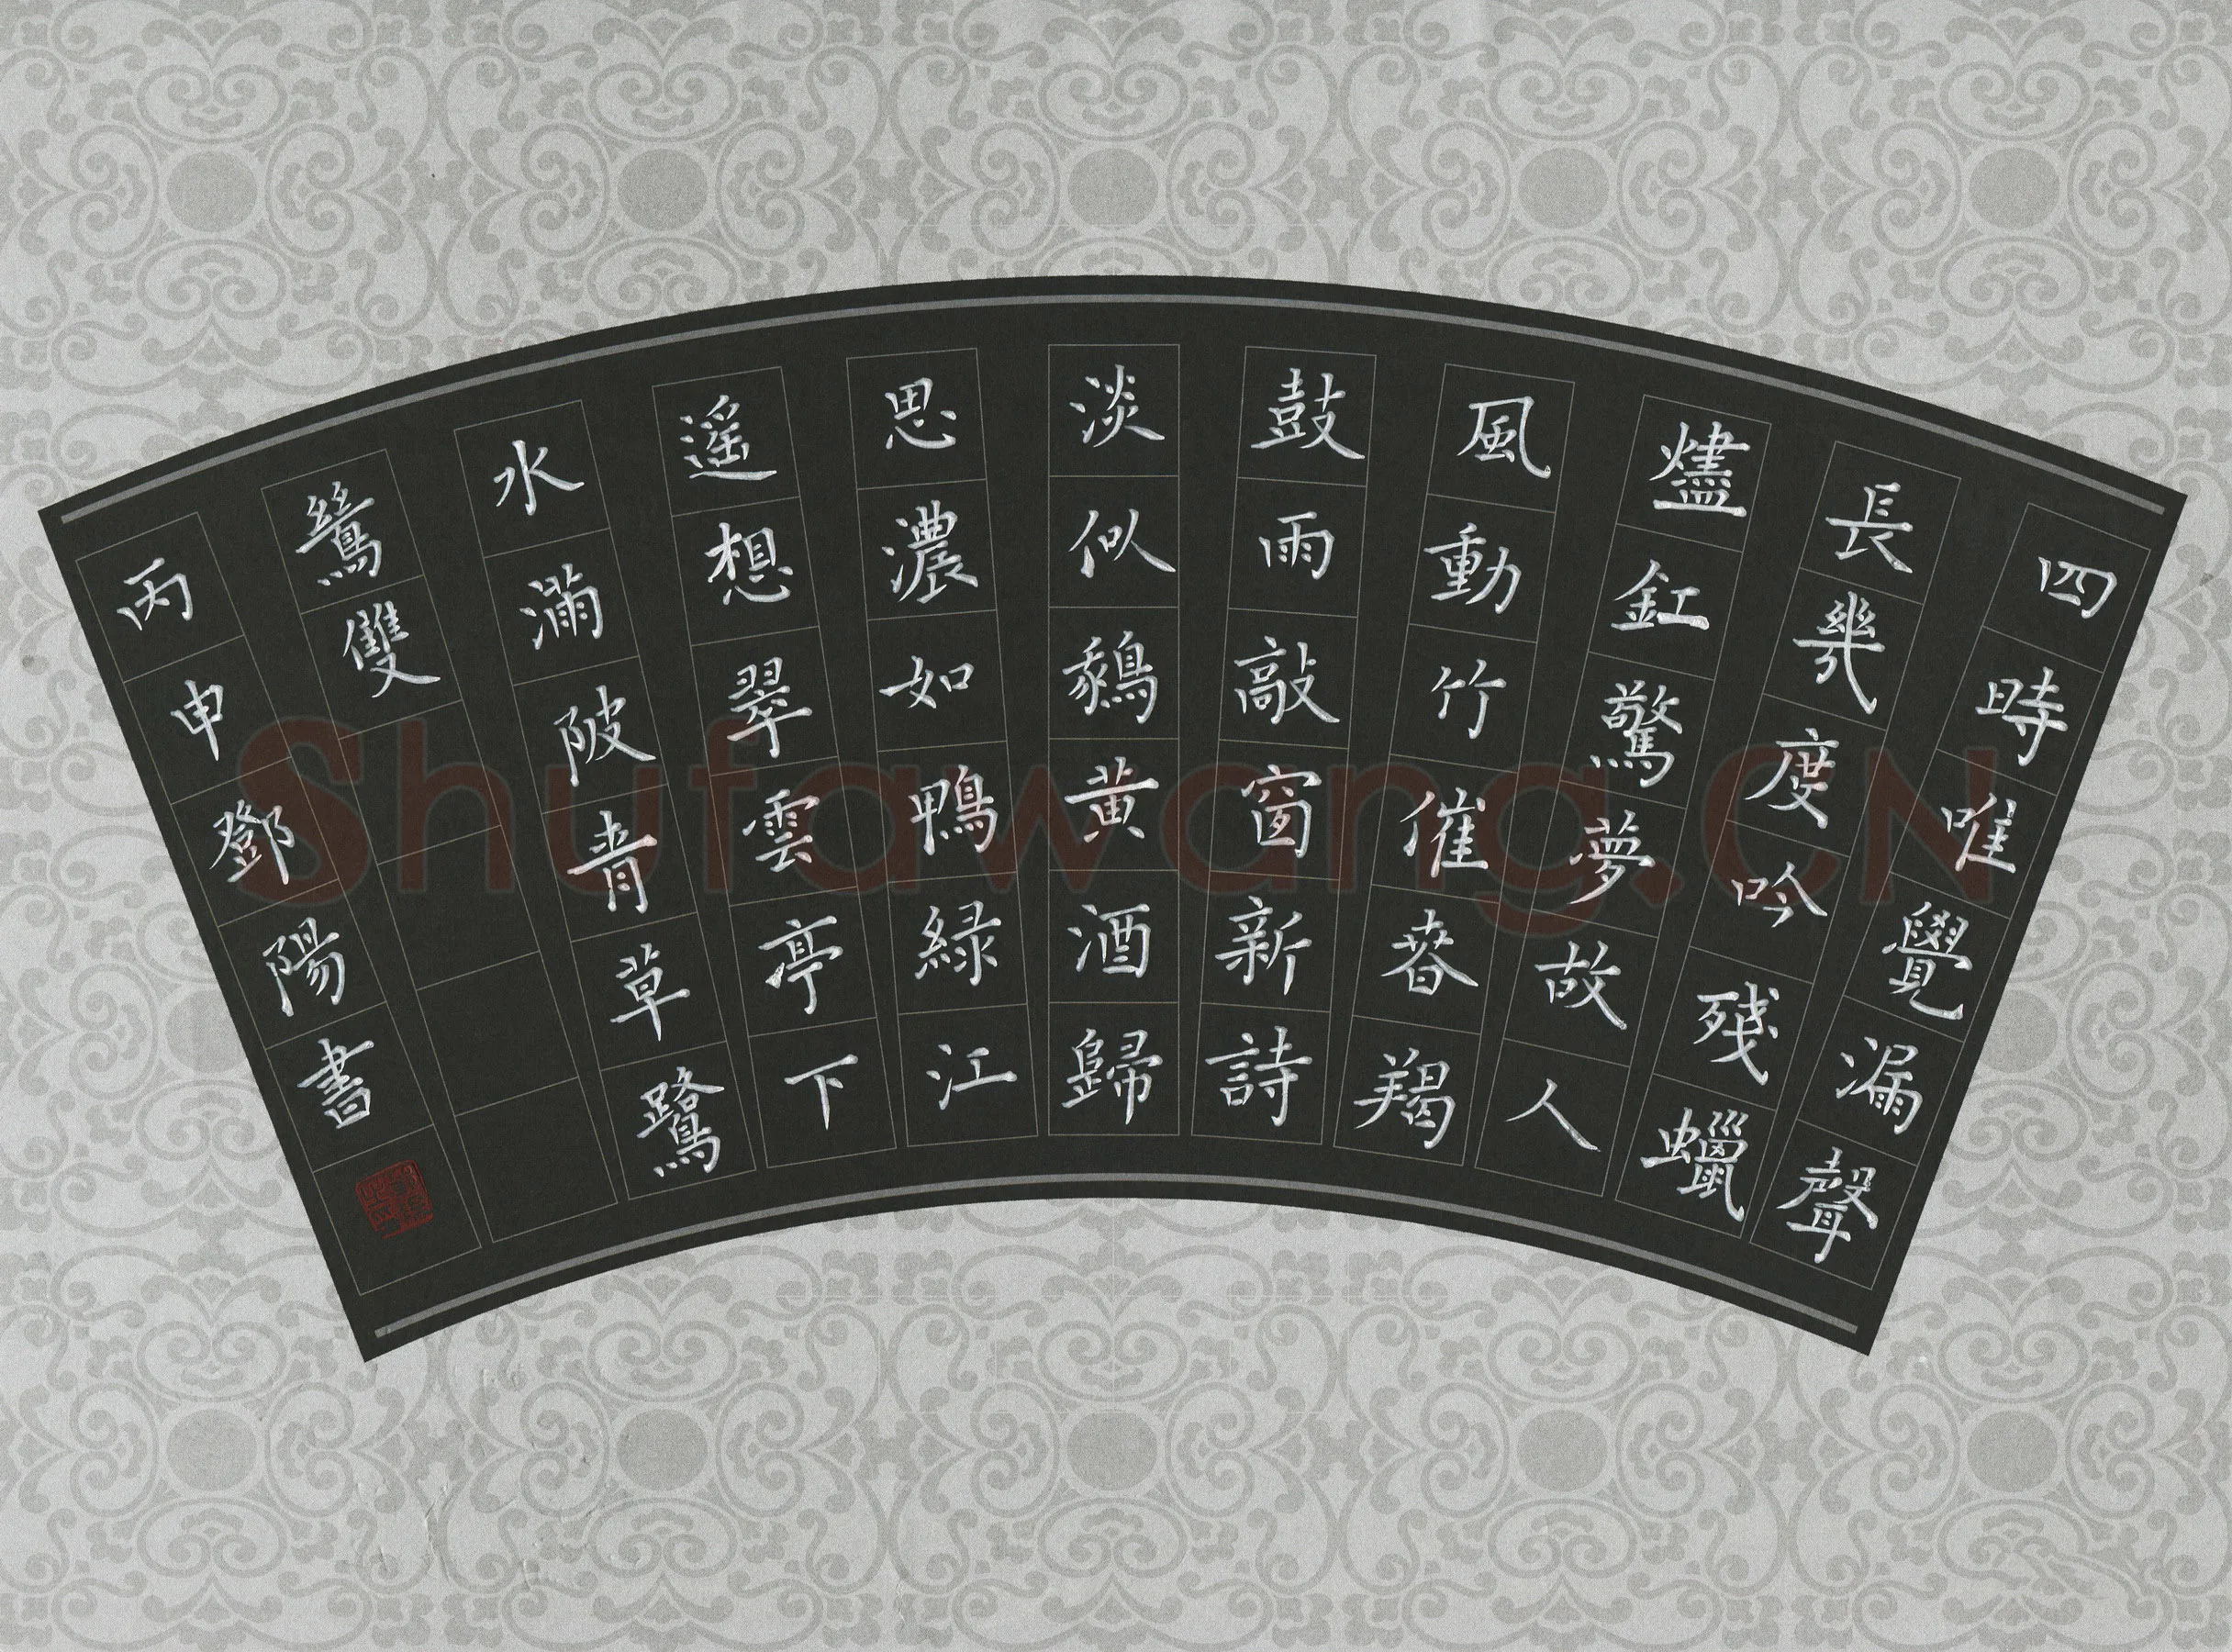 四時唯覺漏聲
長幾度吟殘蠟
燼釭驚夢故人
風動竹催春羯
鼓雨敲窗新詩
淡似鵝黄酒歸
思濃如鴨綠江
遥想翠雲亭下
水滿陂青草鷺
鷥雙
丙申鄧陽書
Shufawang.CN